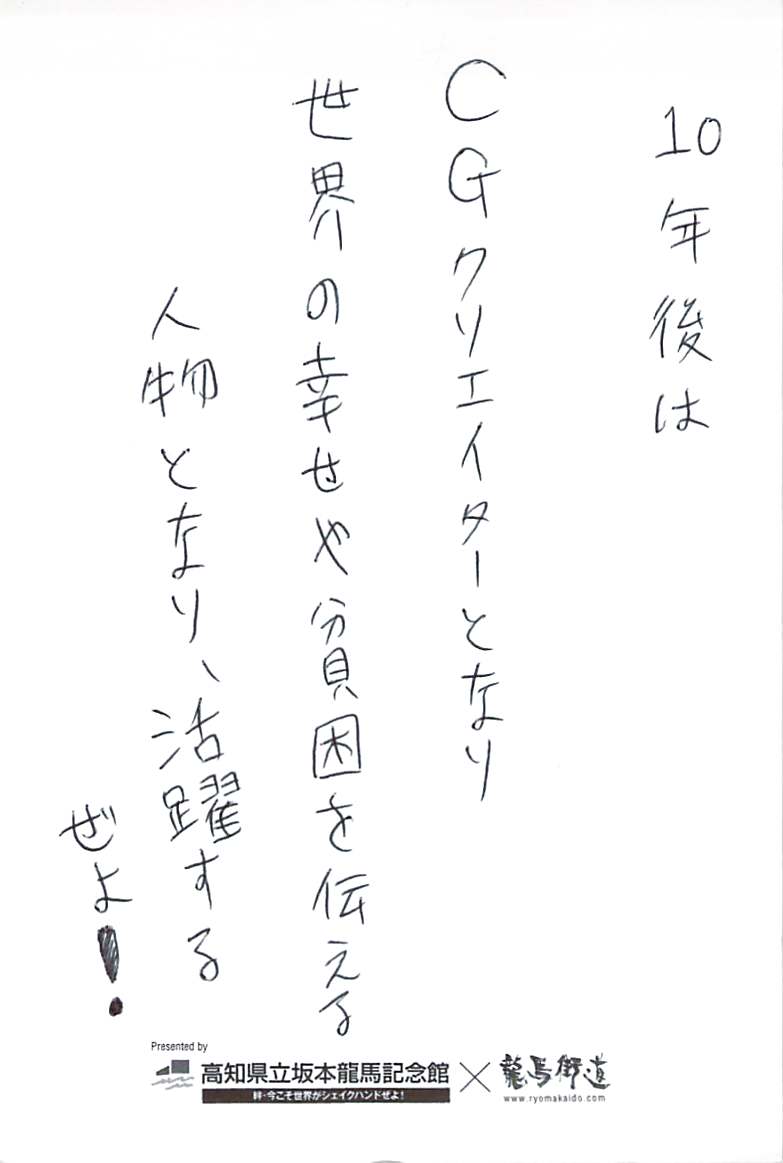 10年後は
CGクリエイターとなり
世界の幸せや貧困を伝える
人物となり、活躍する
ぜよ!
Presented by
高知県立坂本龍馬記念館×龍馬街道
絆・今こそ世界がシェイクハンドぜよ!
www.ryomakaido.com